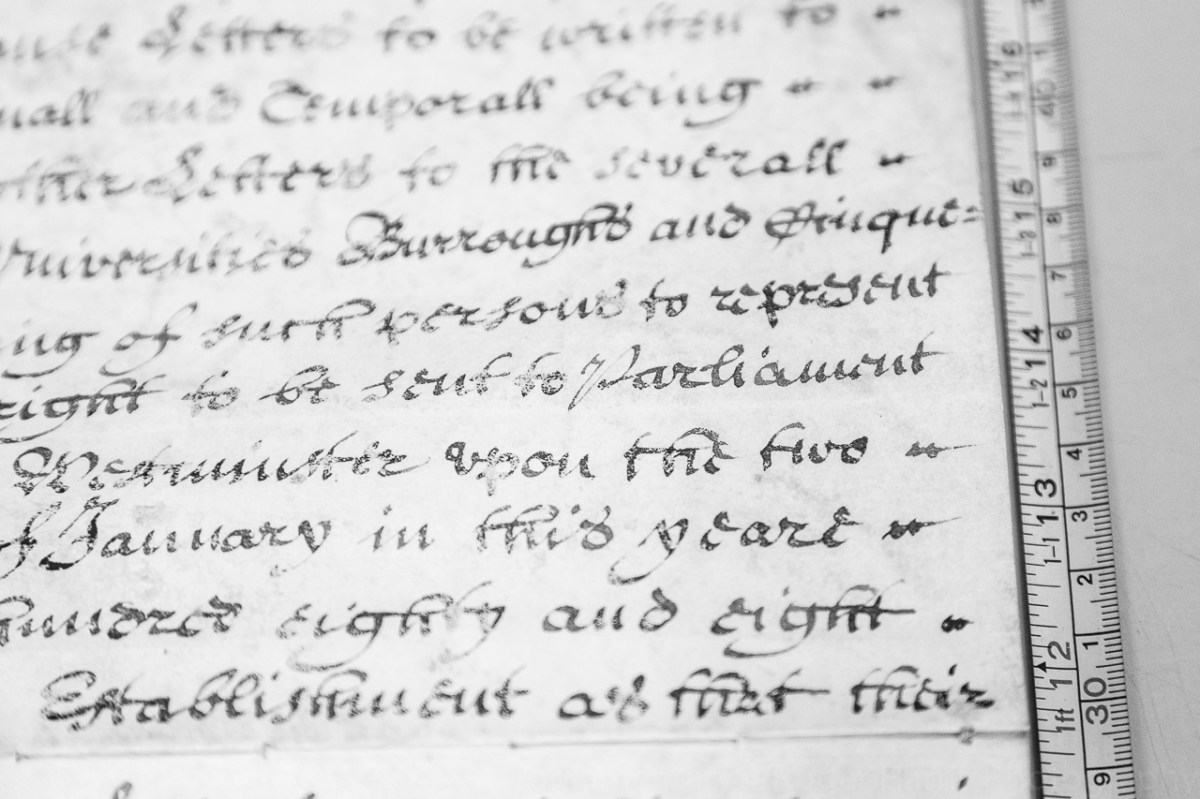 Letters to be written to
and Temporall being
Letters to the severall
Universities Burroughs and Cinque=
ing of such persons to represent
right to be sent to Parliament
Westminster upon the two
of January in this yeare
hundred eighty and eight
Establishment as that their
16 15 14 13 12
1-3 1-2 1-1 1ft
1 40 9 8 7 6 5 4 3 2 1 30 9